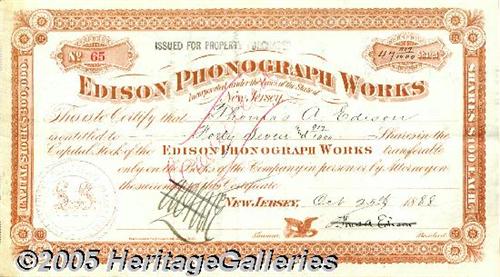 ISSUED FOR PROPERTY
No 65
EDISON PHONOGRAPH WORKS
Incorporated under the Laws of the State of
New Jersey.
This is to Certify that Thomas A Edison
is entitled to Forty Seven Shares in the
Capital Stock of the EDISON PHONOGRAPH WORKS transferable
only on the Books of the Company in person or by Attorney on
the surrender of this certificate.
NEW JERSEY, Oct 25th 1888
Treasurer. President.
CAPITAL STOCK $300,000.
SHARES $100 EACH.
©2005 HeritageGalleries